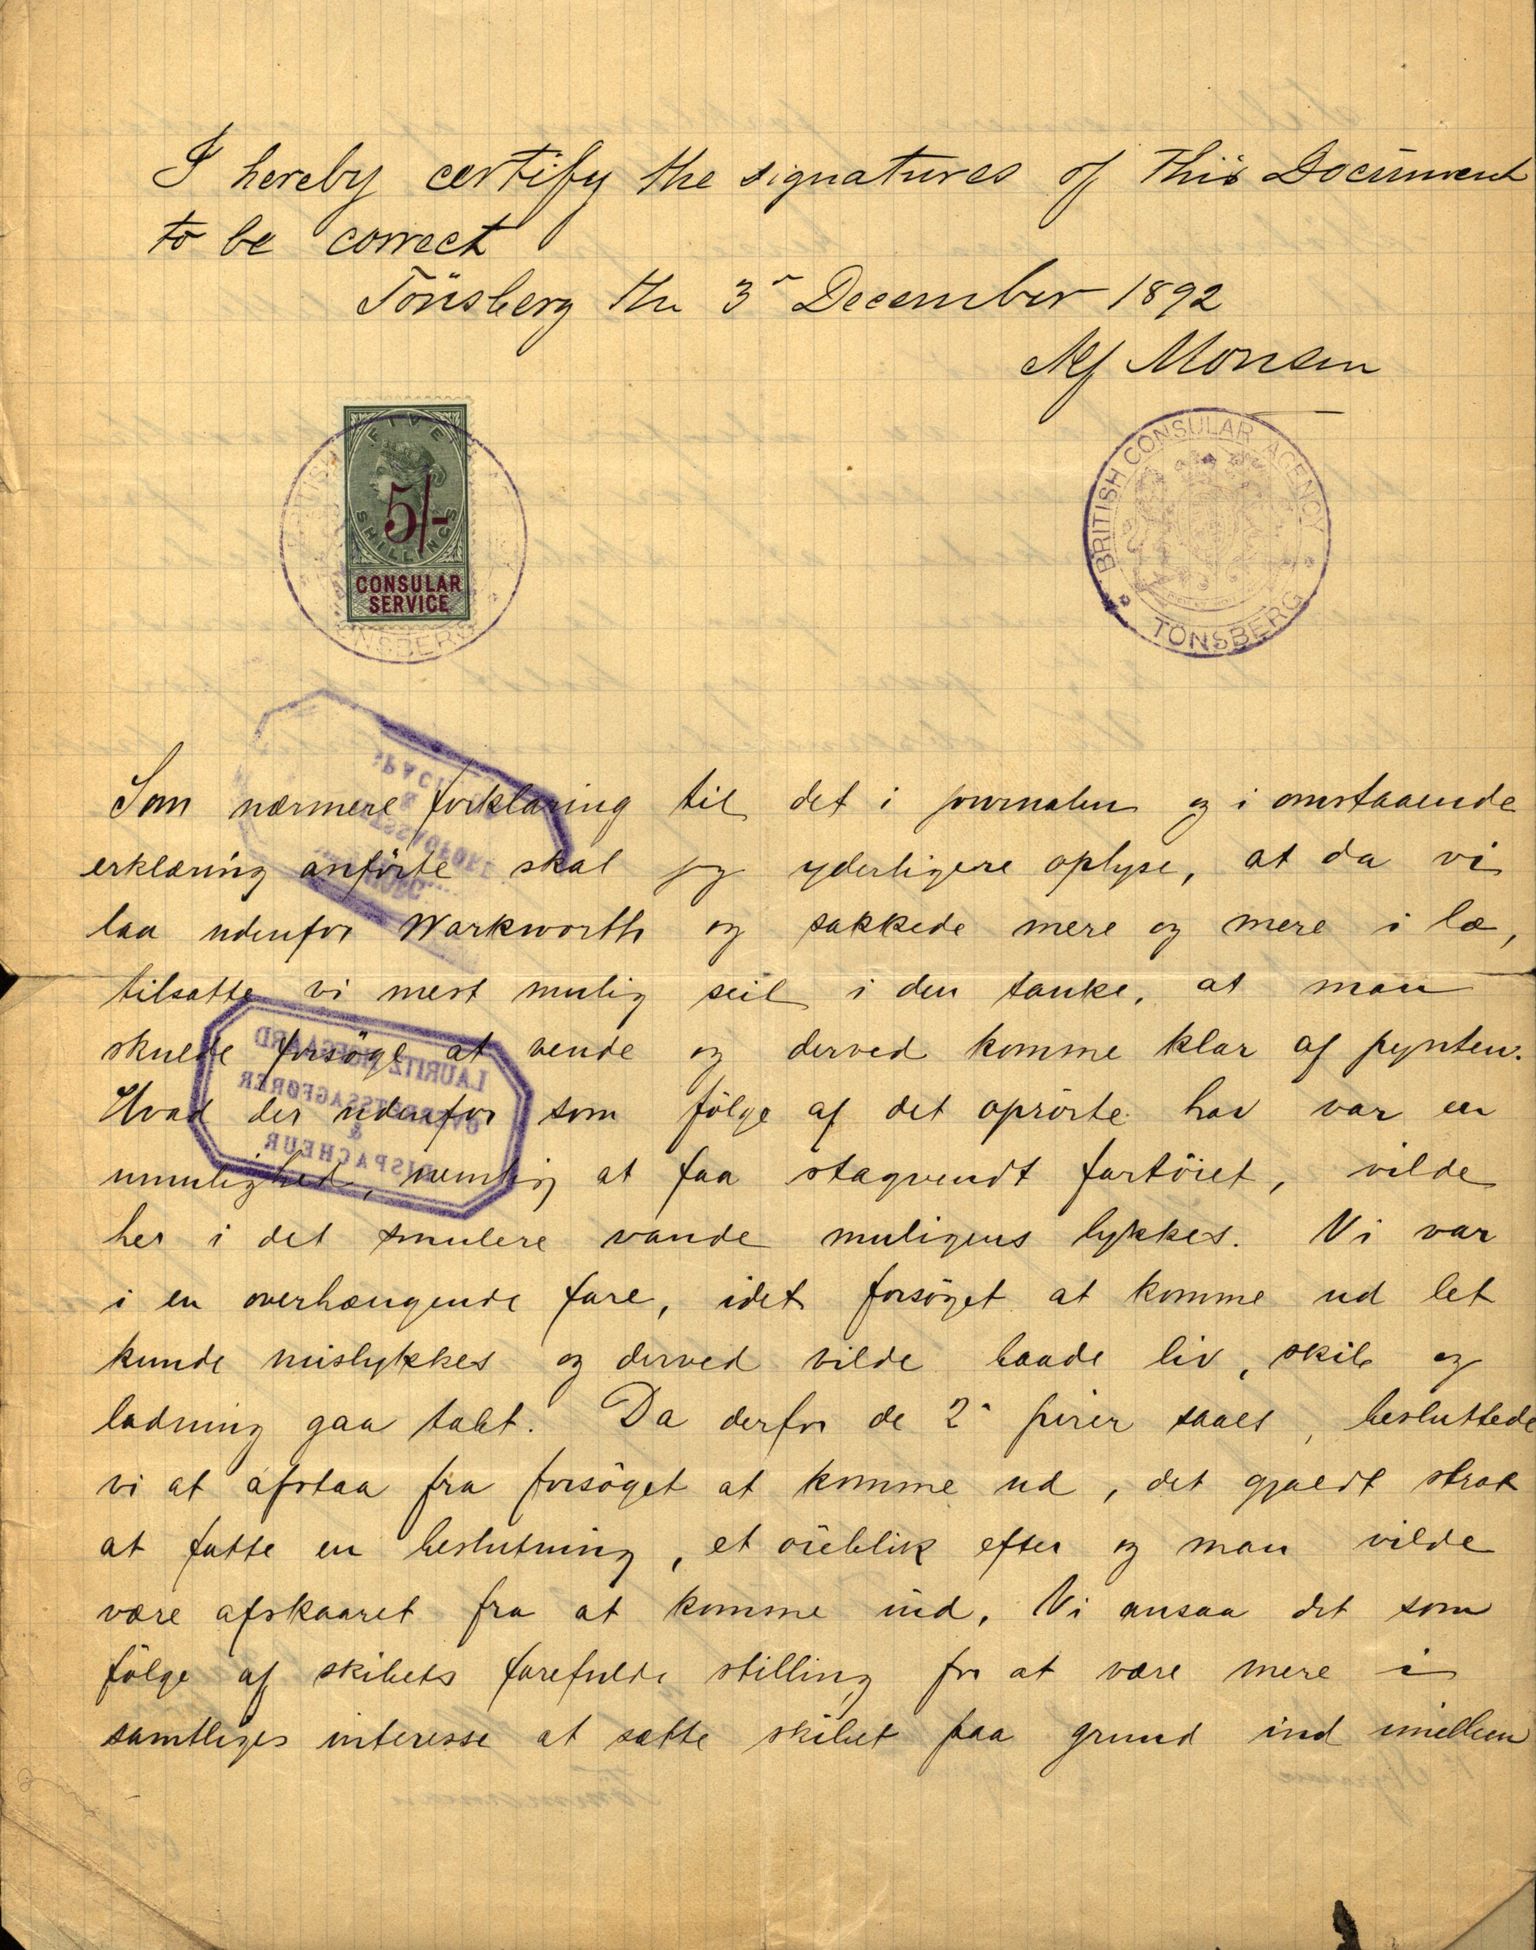 I hereby certify the signatures of this Document
to be correct
Tönsberg the 3r December 1892
Alf Monsen
FIVE
SHILLINGS
5/-
CONSULAR
SERVICE
BRITISH CONSULAR AGENCY
TÖNSBERG
Som nærmere forklaring til det i journalen og i omstaaende
erklæring anförte skal jeg yderligere oplyse, at da vi
laa udenfor Warkworth og sakkede mere og mere i læ,
tilsatte vi mest mulig seil i den tanke, at man
skulde forsöge at vende og derved komme klar af pynten.
Hvad der udenfor som fölge af det oprörte hav var en
umulighed, nemlig at faa stagvendt fartöiet, vilde
her i det smulere vande muligens lykkes. Vi var
i en overhængende fare, idet forsöget at komme ud let
kunde mislykkes og derved vilde baade liv, skib og
ladning gaa tabt. Da derfor de 2de pirer saaes, besluttede
vi at afstaa fra forsöget at komme ud, det gjaldt strax
at fatte en beslutning, et öieblik efter og man vilde
være afskaaret fra at komme ind. Vi ansaa det som
fölge af skibets farefulde stilling for at være mere i
samtliges interesse at sætte skibet paa grund ind imellem
LAURITZ
OVERRETSSAGFØRER
&
DISPACHEUR